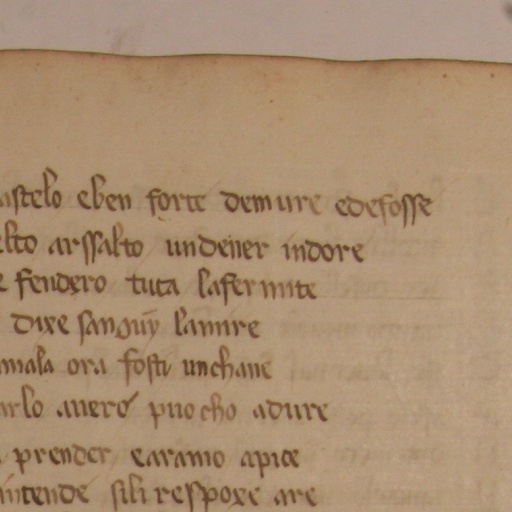 astelo eben forte demure edefosse
elto arssalto undener indore
e fendero tuta lafermite
dixe sanguĩ lamire
amala ora fosti unchaue
arlo auere puocho adure
prender earamo apice
intende sili respoxe are